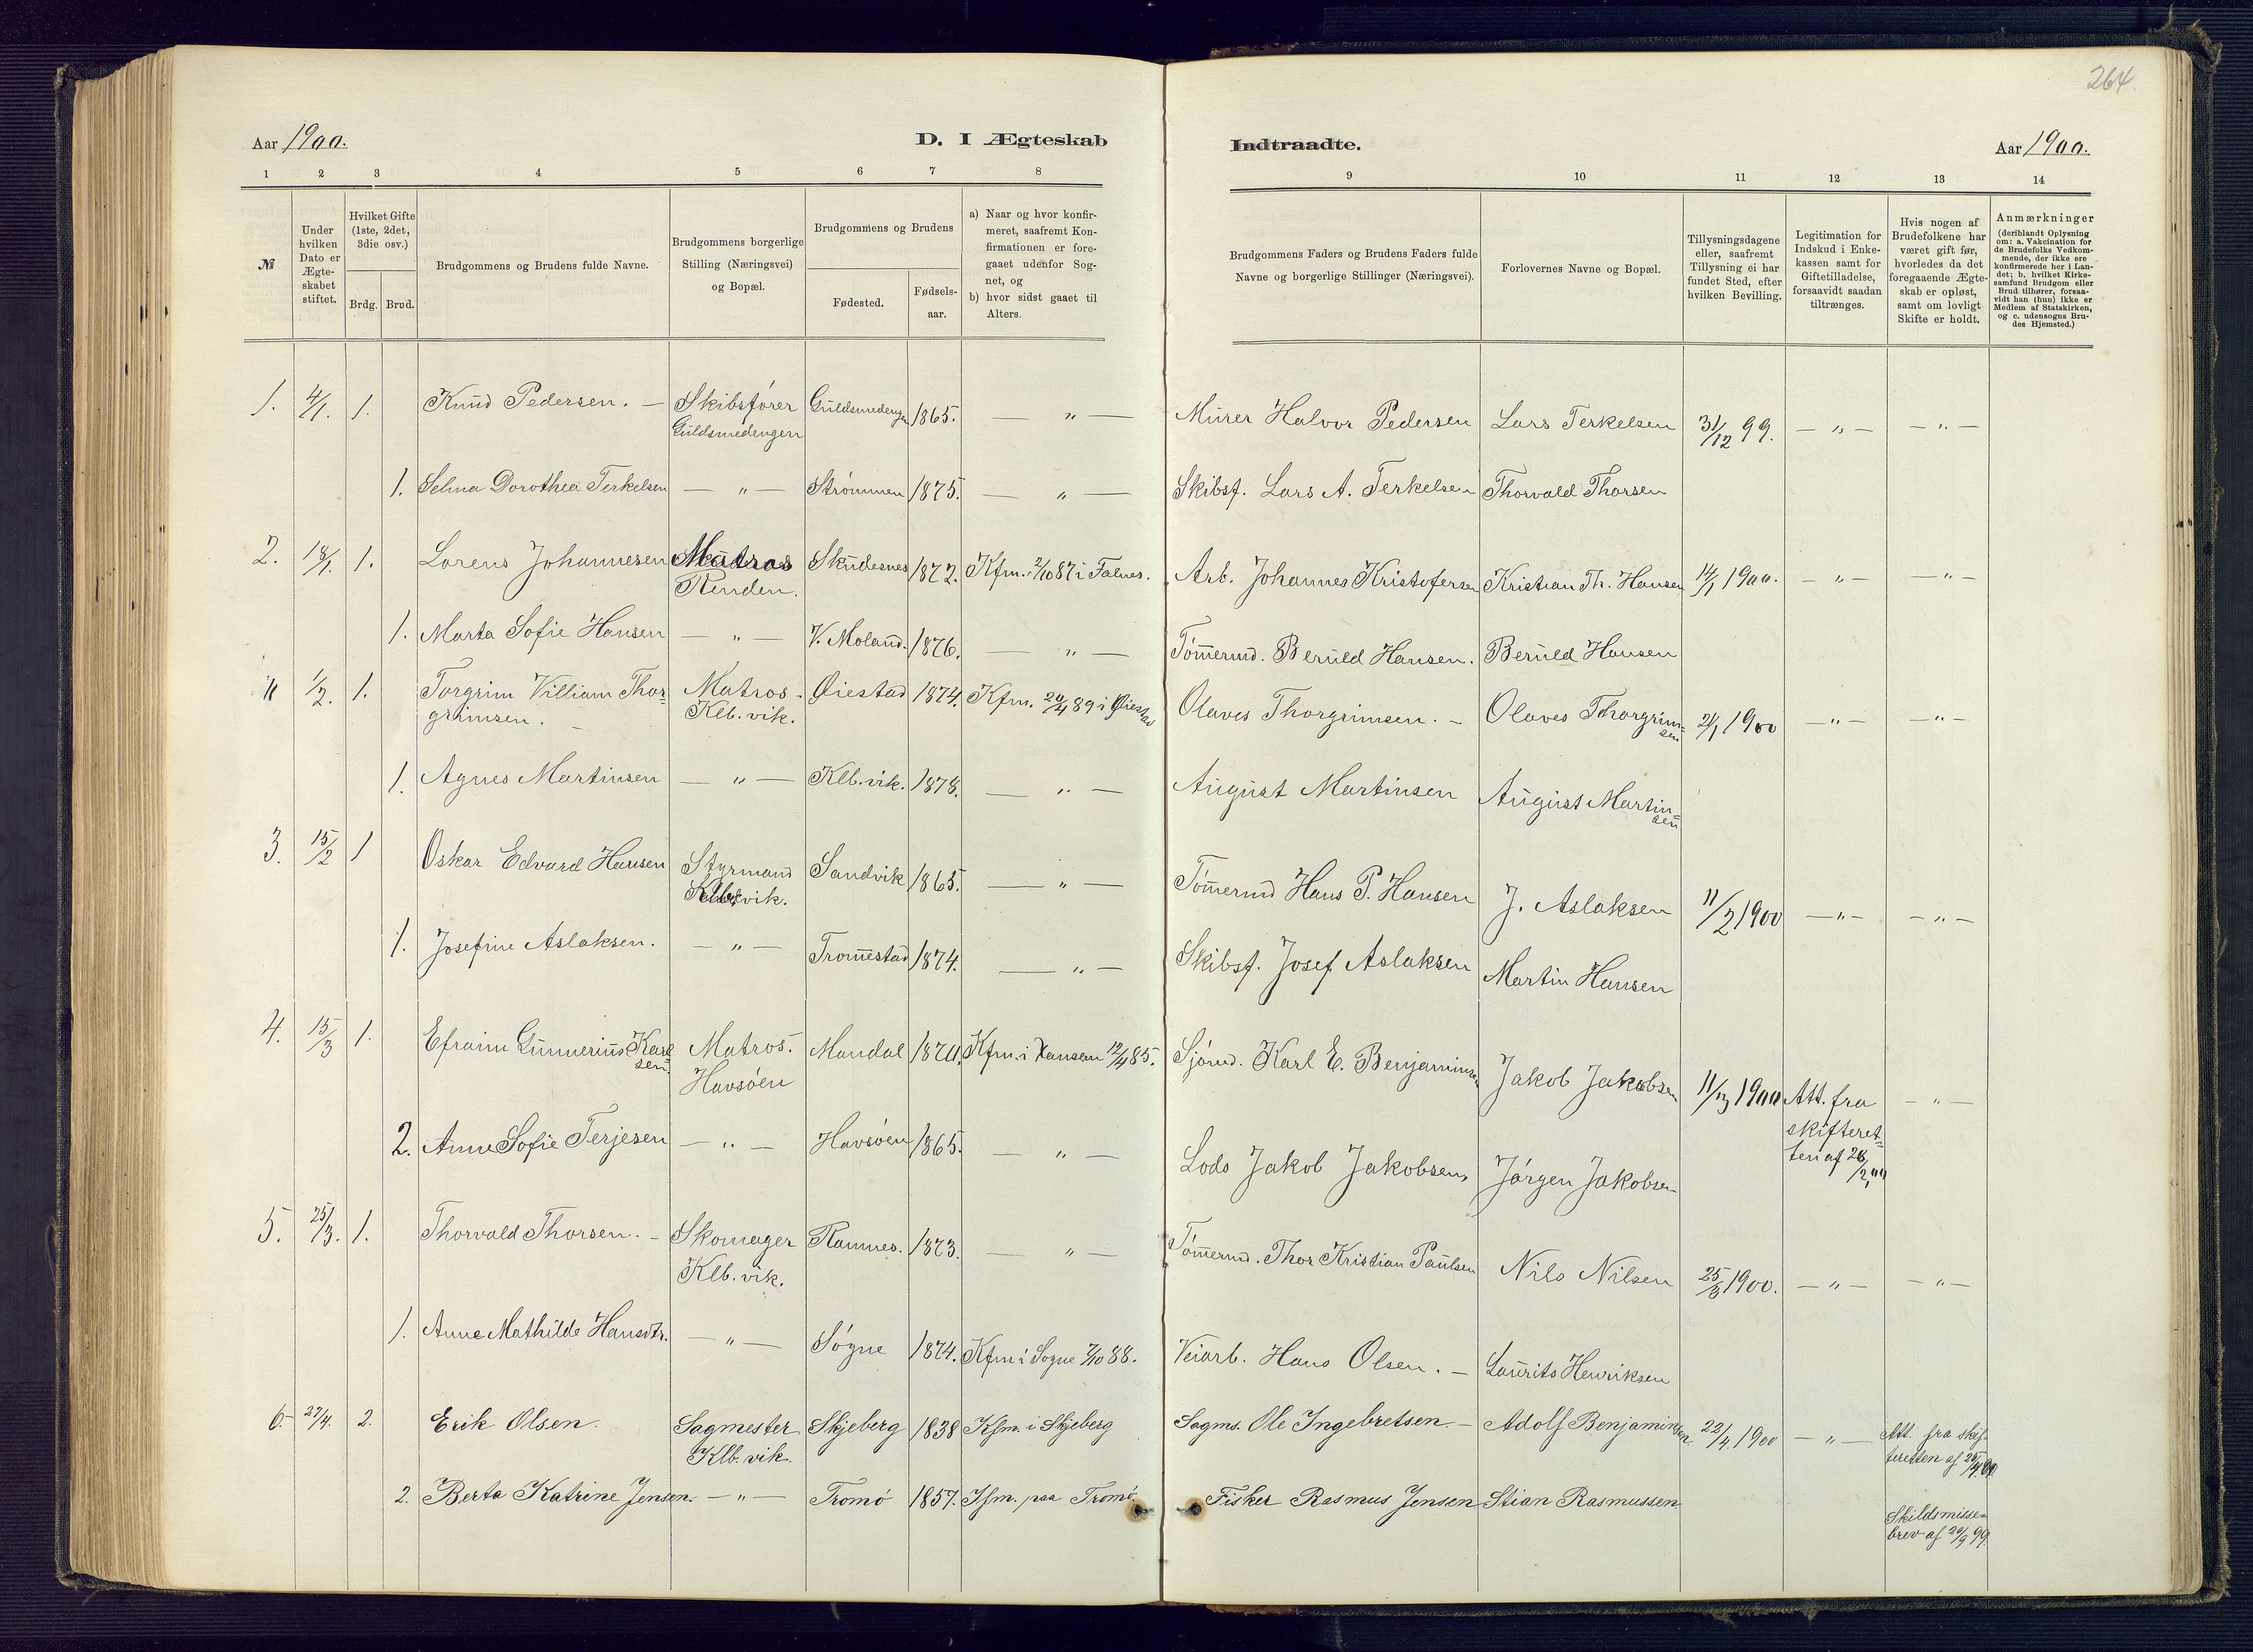 264.
Aar 1900.
D. I Ægteskab
Indtraadte.
Aar 1900.
1 2 3 4 5 6 7 8 9 10 11 12 13 14
№
Under
hvilken
Dato er
Ægte-
skabet
stiftet.
Hvilket Gifte
(1ste, 2det,
3die osv.)
Brdg. Brud.
Brudgommens og Brudens fulde Navne.
Brudgommens borgerlige
Stilling (Næringsvei)
og Bopæl.
Brudgommens og Brudens
Fødested.
Fødsels-
aar.
a) Naar og hvor konfir-
meret, saafremt Kon-
firmationen er fore-
gaaet udenfor Sog-
net, og
b) hvor sidst gaaet til
Alters.
Brudgommens Faders og Brudens Faders fulde
Navne og borgerlige Stillinger (Næringsvei).
Forlovernes Navne og Bopæl.
Tillysningsdagene
eller, saafremt
Tillysning ei har
fundet Sted, efter
hvilken Bevilling.
Legitimation for
Indskud i Enke-
kassen samt for
Giftetilladelse,
forsaavidt saadan
tiltrænges.
Hvis nogen af
Brudefolkene har
været gift før,
hvorledes da det
foregaaende Ægte-
skab er opløst,
samt om lovligt
Skifte er holdt.
Anmærkninger
(deriblandt Oplysning
om: a. Vakcination for
de Brudefolks Vedkom-
mende, der ikke ere
konfirmerede her i Lan-
det; b. hvilket Kirke-
samfund Brudgom eller
Brud tilhører, forsaa-
vidt han (hun) ikke er
Medlem af Statskirken,
og c. udensogns Bru-
des Hjemsted.)
1. 4/1. 1. Knud Pedersen. — Skibsfører Guldsmedengen 1865. — " — Murer Halvor Pedersen Lars Terkelsen 31/12 99. — " — — " —
Guldsmedengen
1. Selma Dorothea Terkelsen — " — Strømmen 1875. — " — Skibsf. Lars A. Terkelsen Thorvald Thorsen
2. 18/1. 1. Lorens Johannesen Matros Skudesnes 1872. Kfm. 2/10 87 i Falnes. Arb. Johannes Kristofersen Kristian Th. Hansen 14/1 1900. — " — — " —
Renden.
1. Marta Sofie Hansen — " — V. Moland. 1876. — " — Tømermd. Beruld Hansen. Beruld Hansen
1/2. 1. Torgrim Villiam Thor- Matros. Øiestad 1874. Kfm. 20/4 89 i Øiestad Olaves Thorgrimsen. — Olaves Thorgrim- 21/1 1900 — " — — " —
grimsen. — Klb. vik. sen
1. Agnes Martinsen — " — Klb. vik. 1878. — " — August Martinsen August Martin-
sen
3. 15/2 1 Oskar Edvard Hansen Styrmand Sandvik 1865. — " — Tømermd Hans P. Hansen J. Aslaksen 11/2 1900 — " — — " —
Klb. vik.
1. Josefine Aslaksen. — " — Tromestad 1874. — " — Skibsf. Josef Aslaksen Martin Hansen
4. 15/3 1. Efraim Gunnerius Karl- Matros. Mandal 1870. Kfm. i 12/4 85. Sjømd. Karl E. Benjaminsen Jakob Jakobsen 11/3 1900 Att. fra — " —
sen. Havsøen skifteret-
2. Anne Sofie Terjesen — " — Havsøen 1865. — " — Lods Jakob Jakobsen, Jørgen Jakobsen ten af 26/2 00
5. 25/3. 1. Thorvald Thorsen. — Skomager Rannes. 1873. — " — Tømermd. Thor Kristian Paulsen Nils Nilsen 25/3 1900. — " — — " —
Klb. vik.
1. Anne Mathilde Hansdtr. — " — Søgne 1874. Kfm i Søgne 7/10 88. Veiarb. Hans Olsen. — Laurits Henriksen
6. 27/4. 2. Erik Olsen. Sagmester Skjeberg 1838 Kfm. i Skjeberg Sagms. Ole Ingebretsen. — Adolf Benjaminsen. 22/4. 1900 — " — Att. fra skif-
Klb. vik. teretten af 25/4 00
2. Berta Katrine Jensen. — " — Tromø 1857. Kfm. paa Tromø. Fisker Rasmus Jensen Stian Rasmussen
Skildsmisse-
brev af 20/9 99.